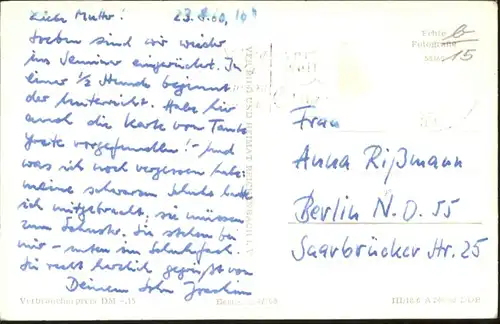 Liebe Mutter! 23.8.60, 10h
Soeben sind wir wieder
ins Seminar eingerückt. In
einer ½ Stunde beginnt
der Unterricht. Habe hier
auch die Karte von Tante
Grete vorgefunden! - Und
was ich noch vergessen habe:
meine schwarzen Schuhe hatte
ich mitgebracht; sie müssen
zum Schuster. Sie stehen bei
mir - unten im Schuhfach.
Sei recht herzlich gegrüßt von
Deinem Sohn Joachim
Verbraucherpreis DM -,15
Echte
Fotografie
15
Frau
Anna Rißmann
Berlin N.O. 55
Saarbrücker Str. 25